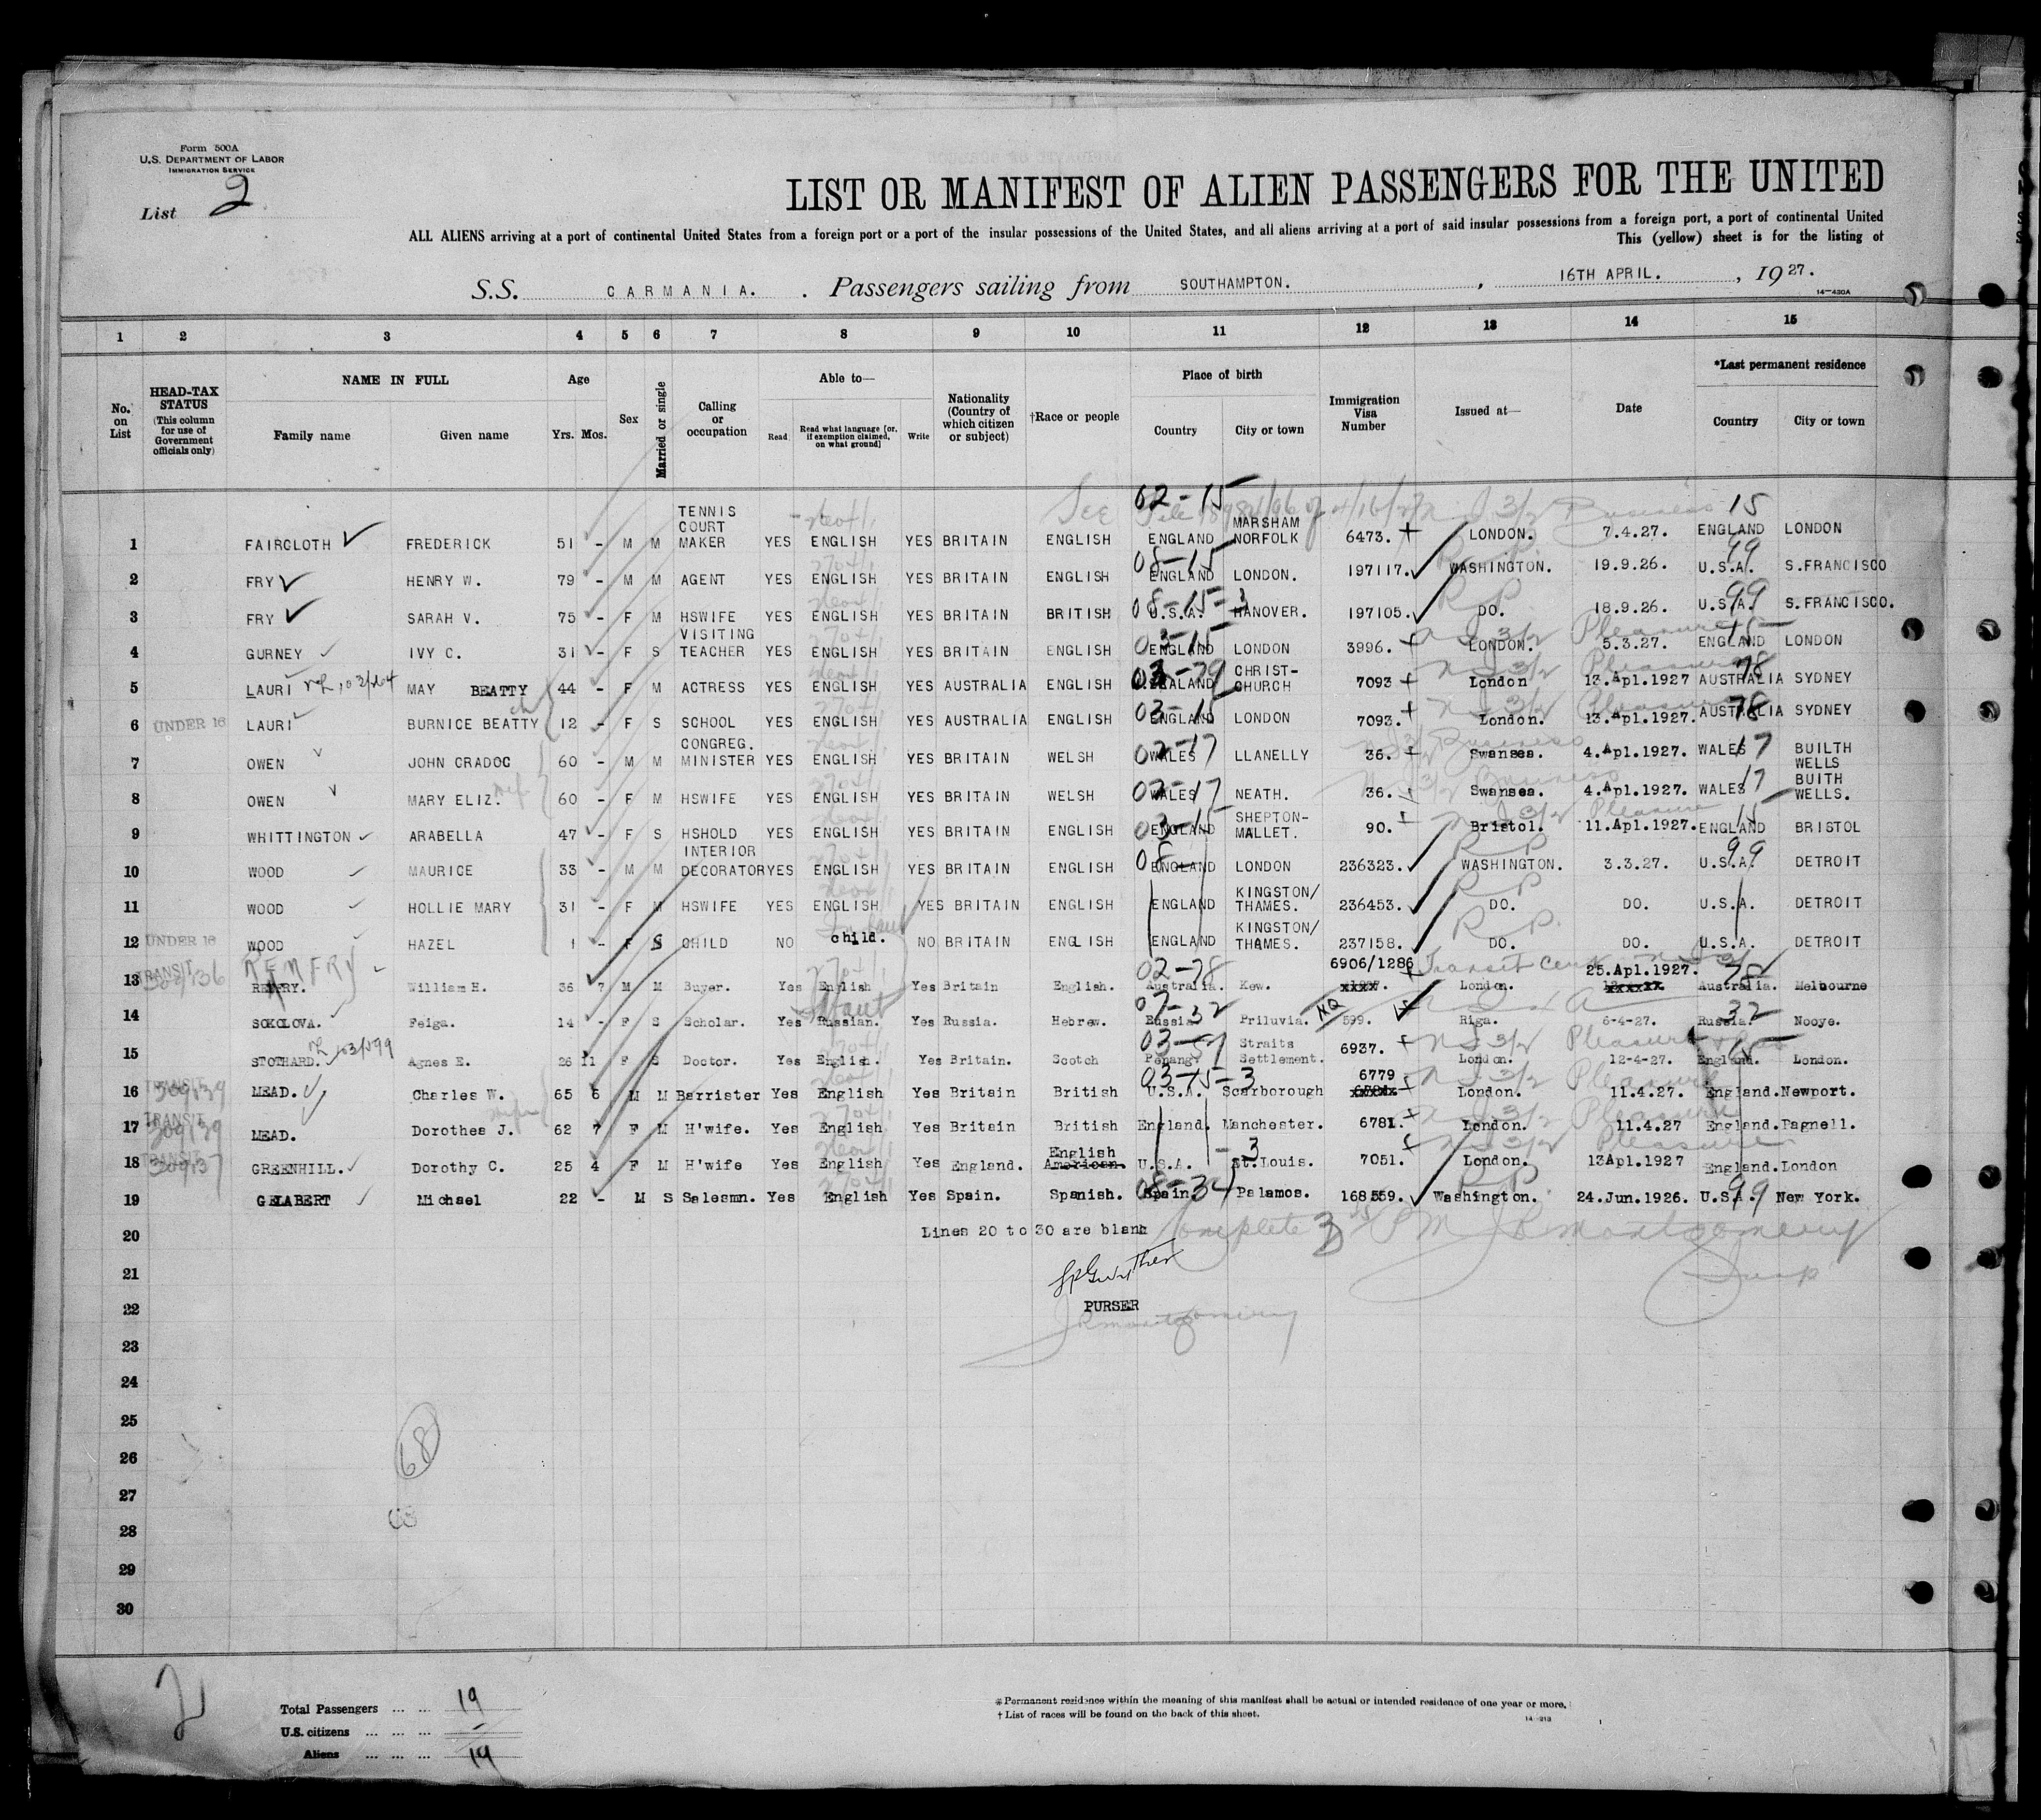 Form 500A
U.S. DEPARTMENT OF LABOR
IMMIGRATION SERVICE
List 2
LIST OR MANIFEST OF ALIEN PASSENGERS FOR THE UNITED
ALL ALIENS arriving at a port of continental United States from a foreign port or a port of the insular possessions of the United States, and all aliens arriving at a port of said insular possessions from a foreign port, a port of continental United
This (yellow) sheet is for the listing of
S.S. CARMANIA. Passengers sailing from SOUTHAMPTON. , 16TH APRIL. , 1927.
14-430A
1 2 3 4 5 6 7 8 9 10 11 12 13 14 15
No. on List
HEAD-TAX STATUS (This column for use of Government officials only)
NAME IN FULL Family name Given name
Age Yrs. Mos.
Sex
Married or single
Calling or occupation
Able to— Read Read what language [or, if exemption claimed, on what ground] Write
Nationality (Country of which citizen or subject)
†Race or people
Place of birth Country City or town
Immigration Visa Number
Issued at—
Date
*Last permanent residence Country City or town
See 02-15 Business 15
1 FAIRCLOTH FREDERICK 51 - M M TENNIS COURT MAKER YES ENGLISH YES BRITAIN ENGLISH ENGLAND MARSHAM NORFOLK 6473. LONDON. 7.4.27. ENGLAND LONDON
08-15 RP 99
2 FRY HENRY W. 79 - M M AGENT YES ENGLISH YES BRITAIN ENGLISH ENGLAND LONDON. 197117. WASHINGTON. 19.9.26. U.S.A. S.FRANCISCO
08-15-3 RP 99
3 FRY SARAH V. 75 - F M HSWIFE YES ENGLISH YES BRITAIN BRITISH U.S.A. HANOVER. 197105. DO. 18.9.26. U.S.A. S.FRANCISCO.
03-15 Pleasure 15
4 GURNEY IVY C. 31 - F S VISITING TEACHER YES ENGLISH YES BRITAIN ENGLISH ENGLAND LONDON 3996. LONDON. 5.3.27. ENGLAND LONDON
03-79 Pleasure 78
5 LAURI MAY BEATTY 44 - F M ACTRESS YES ENGLISH YES AUSTRALIA ENGLISH Z.EALAND CHRIST-CHURCH 7093 London 13.Apl.1927 AUSTRALIA SYDNEY
03-15 Pleasure 78
6 UNDER 16 LAURI BURNICE BEATTY 12 - F S SCHOOL YES ENGLISH YES AUSTRALIA ENGLISH ENGLAND LONDON 7093. London. 13.Apl.1927. AUSTRALIA SYDNEY
02-17 Business 17
7 OWEN JOHN CRADOC 60 - M M CONGREG. MINISTER YES ENGLISH YES BRITAIN WELSH WALES LLANELLY 36. Swansea. 4.Apl.1927. WALES BUILTH WELLS
02-17 Business 17
8 OWEN MARY ELIZ. 60 - F M HSWIFE YES ENGLISH YES BRITAIN WELSH WALES NEATH. 36. Swansea. 4.Apl.1927. WALES BUITH WELLS.
03-15 Pleasure 15
9 WHITTINGTON ARABELLA 47 - F S HSHOLD YES ENGLISH YES BRITAIN ENGLISH ENGLAND SHEPTON-MALLET. 90. Bristol. 11.Apl.1927. ENGLAND BRISTOL
08- RP 99
10 WOOD MAURICE 33 - M M INTERIOR DECORATOR YES ENGLISH YES BRITAIN ENGLISH ENGLAND LONDON 236323. WASHINGTON. 3.3.27. U.S.A. DETROIT
RP
11 WOOD HOLLIE MARY 31 - F M HSWIFE YES ENGLISH YES BRITAIN ENGLISH ENGLAND KINGSTON/THAMES. 236453. DO. DO. U.S.A. DETROIT
RP
12 UNDER 16 WOOD HAZEL 1 - F S CHILD NO child. NO BRITAIN ENGLISH ENGLAND KINGSTON/THAMES. 237158. DO. DO. U.S.A. DETROIT
REMFRY 02-78 Transit 78
13 TRANSIT 309136 REMFRY. William H. 36 7 M M Buyer. Yes English Yes Britain English. Australia. Kew. 6906/1286 London. 25.Apl.1927. Australia. Melbourne
07-32 32
14 SOKOLOVA. Feiga. 14 - F S Scholar. Yes Russian. Yes Russia. Hebrew. Russia Priluvia. NQ 599. Riga. 6-4-27. Russia. Nooye.
03-57 Pleasure 15
15 STOTHARD. Agnes E. 26 11 F S Doctor. Yes English. Yes Britain. Scotch Penang Straits Settlement. 6937. London. 12-4-27. England. London.
03-15-3 Pleasure
16 TRANSIT 309139 MEAD. Charles W. 65 6 M M Barrister Yes English Yes Britain British U.S.A. Scarborough 6779 London. 11.4.27. England. Newport.
Pleasure
17 TRANSIT 309139 MEAD. Dorothea J. 62 7 F M H'wife. Yes English Yes Britain British England. Manchester. 6781. London. 11.4.27 England. Pagnell.
-3 Pleasure
18 TRANSIT 309137 GREENHILL. Dorothy C. 25 4 F M H'wife Yes English Yes England. English American. U.S.A. St.Louis. 7051. London. 13Apl.1927 England. London
08-34 RP 99
19 GELABERT Michael 22 - M S Salesmn. Yes English Yes Spain. Spanish. Spain. Palamos. 168559. Washington. 24.Jun.1926. U.S.A. New York.
20 Lines 20 to 30 are blank Complete JR Montgomery
21
22 PURSER
JR Montgomery
23
24
25
26 68
27
28
29
30
2
Total Passengers ... ... 19
U.S. citizens ... ... ... -
Aliens ... ... ... 19
*Permanent residence within the meaning of this manifest shall be actual or intended residence of one year or more.
†List of races will be found on the back of this sheet.
14-213